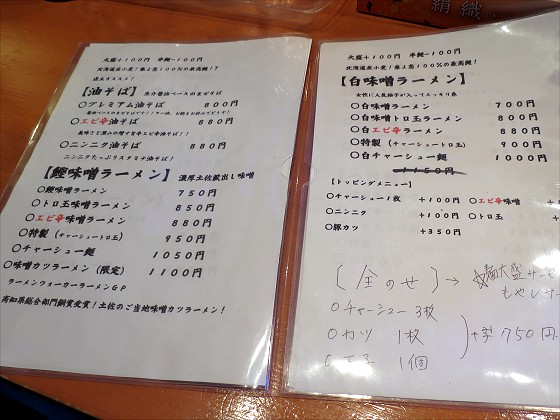 絹織
大盛+100円 半麺-100円
北海道産小麦!春よ恋100%の最高麺!!
店主オススメ!
【油そば】 魚介醤油ベースのまぜそば
○プレミアム油そば 800円
○エビ辛油そば 880円
○ニンニク油そば 880円
ニンニクたっぷりスタミナ油そば!
【鰹味噌ラーメン】 濃厚土佐蔵出し味噌
○鰹味噌ラーメン 750円
○トロ玉味噌ラーメン 850円
○エビ辛味噌ラーメン 880円
○特製(チャーシュートロ玉) 950円
○チャーシュー麺 1050円
○味噌カツラーメン(限定) 1100円
ラーメンウォーカーラーメンGP
高知県総合部門銅賞受賞!土佐のご当地味噌カツラーメン!
大盛+100円 半麺-100円
北海道産小麦!春よ恋100%の最高麺!
【白味噌ラーメン】
女性に人気柚子が入ってスッキリ系
○白味噌ラーメン 700円
○白味噌トロ玉ラーメン 800円
○白エビ辛ラーメン 880円
○特製(チャーシュートロ玉) 900円
○白チャーシュー麺 1000円
1150円
【トッピングメニュー】
○チャーシュー1枚 +100円 ○エビ辛味噌
○ニンニク +100円 ○トロ玉
○豚カツ +350円
〔全のせ〕→ 麺大盛サー
もやしサー
○チャーシュー3枚
○カツ 1枚 +750円
1個